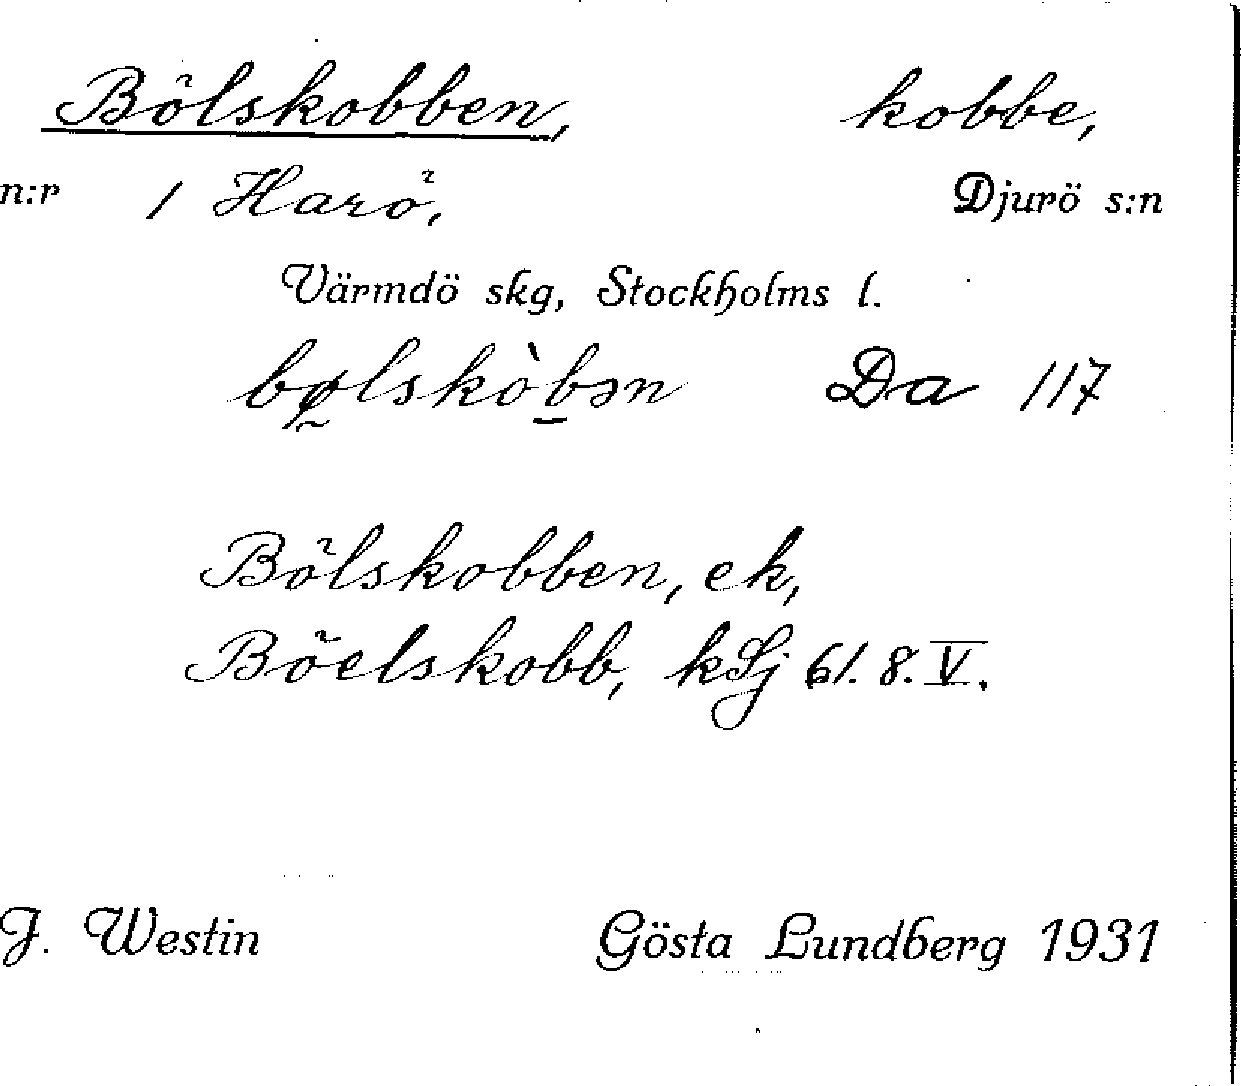 Bölskobben, kobbe,
n:r 1 Harö, Djurö s:n
Värmdö skg, Stockholms l.
bø̰lskòb̲ən Da 117
Bölskobben, ek,
Böelskobb, kSj 61. 8. V.
J. Westin Gösta Lundberg 1931